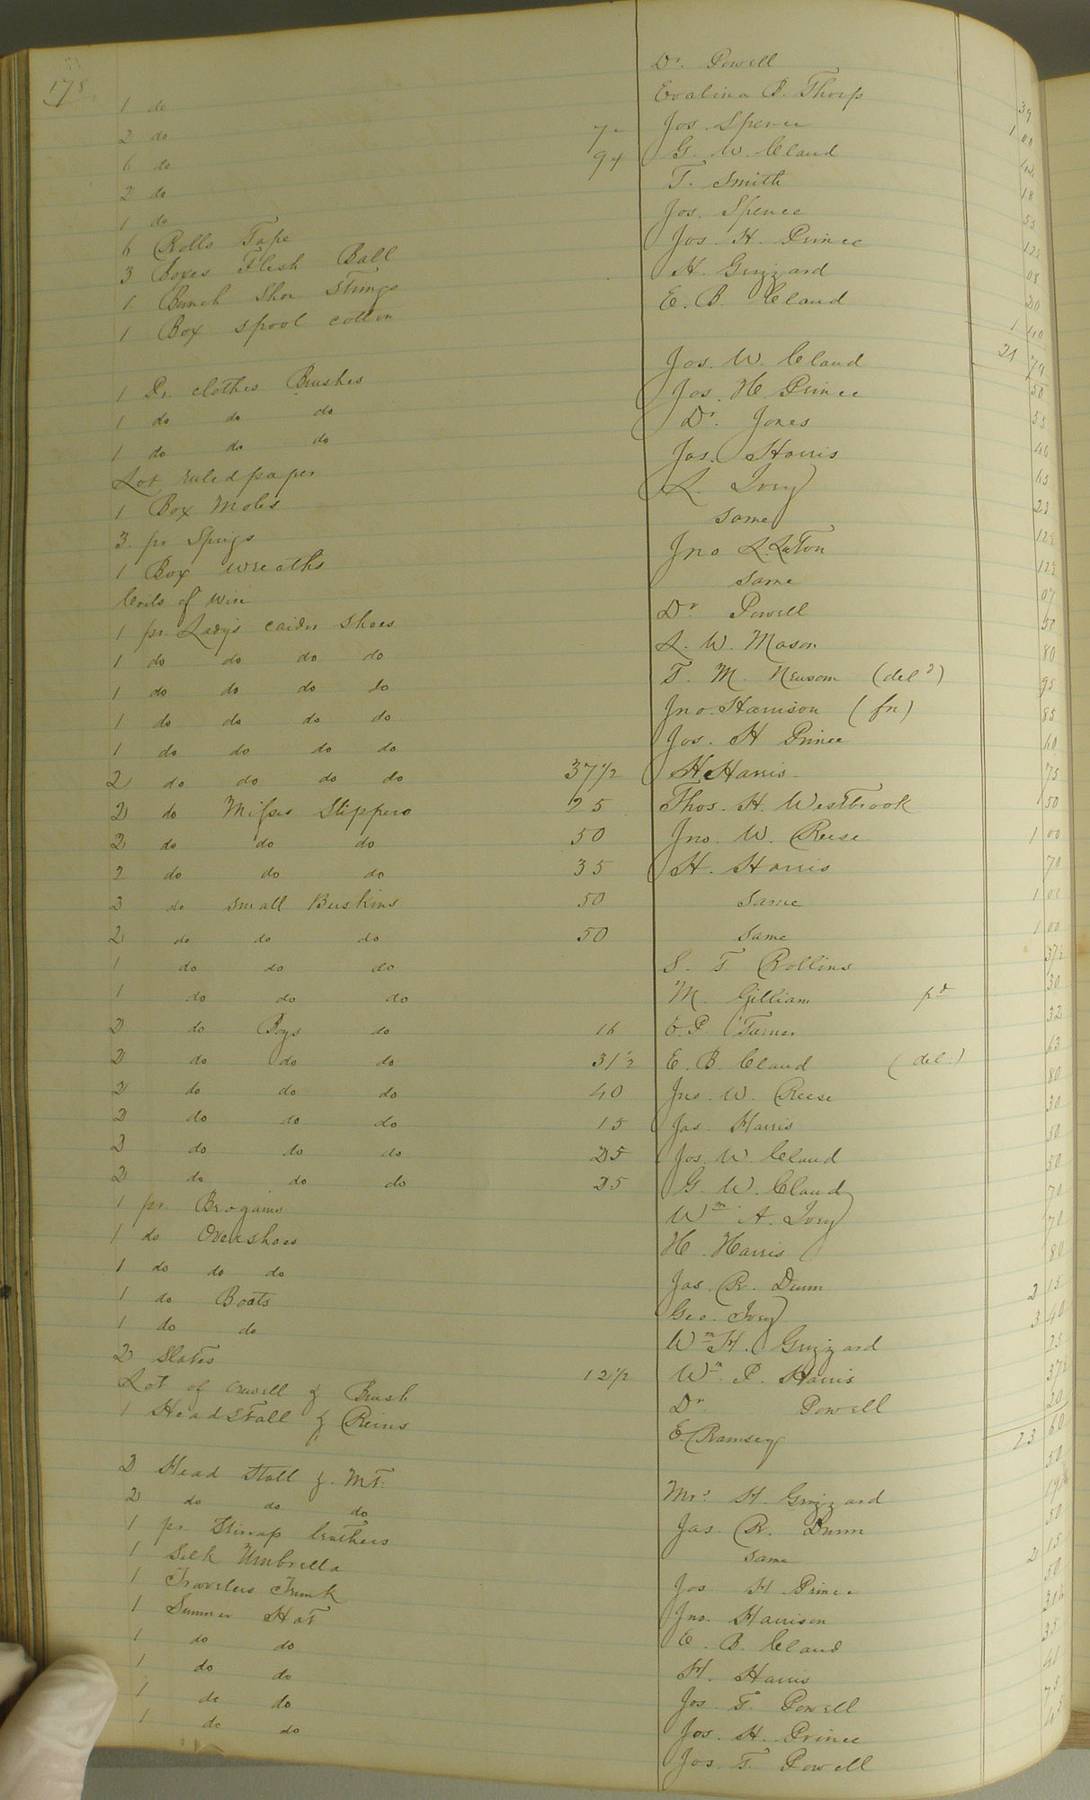 178
Dr. Powell
1 do Evalina B. Thorp 39
2 do Jos. Spence 1 00
6 do 94 G. W. Claud
2 do T. Smith 18
1 do Jos. Spence 55
6 Rolls Tape Jos. H. Prince 12½
3 Boxes Flesh Ball H. Grizzard 08
1 Bunch Shoe Strings E. B. Claud 20
1 Box spool cotton 1 40
21
1 Pr. clothes Brushes Jos. W. Claud 50
1 do do do Jos. H. Prince 55
1 do do do Dr. Jones 46
Lot ruled paper Jas. Harris
1 Box L. Ivey 25
3 pr same 12½
1 Box wreaths Jno. L. LaTon 12½
Coils of wire same 07
1 pr Lady's shoes Dr Powell 50
1 do do do do L. W. Mason 80
1 do do do do T. M. Newsom (del?) 95
1 do do do do Jno. Harrison (fn) 85
1 do do do do Jos. H Prince 60
2 do do do do 37½ H. Harris 75
2 do Misses Slippers 25 Thos. H. Westbrook 50
2 do do do 50 Jno. W. Reese 1 00
2 do do do 35 H. Harris 70
2 do small Buskins 50 same 1 00
2 do do do 50 same 1 00
1 do do do S. T. Rollins 37½
1 do do do M. Gilliam pd 30
2 do Boys do 16 E. P. Turner 32
2 do do do 31½ E. B. Claud (del.) 63
2 do do do 40 Jno. W. Reese 80
2 do do do 15 Jas. Harris 30
2 do do do 25 Jos. W. Claud 50
2 do do do 25 G. W. Claud 50
1 pr. Brogans Wm A. Ivey 70
1 do Overshoes H. Harris 70
1 do do do Jas. R. Dunn 80
1 do Boots Geo. Ivey 2 15
1 do do Wm H. Grizzard 3 40
2 Slates 12½ Wm P. Harris 25
Lot of & Brush Dr Powell 37½
1 Head Stall & Reins E. Ramsey 20
23 60
2 Head Stall & Mt. Mrs. H. Grizzard 50
2 do do do Jas. R. Dunn
1 pr. Stirrup leathers same 50
1 Silk Umbrella Jos H Prince 2 15
1 Travelers Trunk Jno. Harrison 50
1 Summer Hat E. B. Claud
1 do do H. Harris 35
1 do do Jos. T. Powell 41
1 do do Jos. H. Prince 75
1 do do Jos. T. Powell